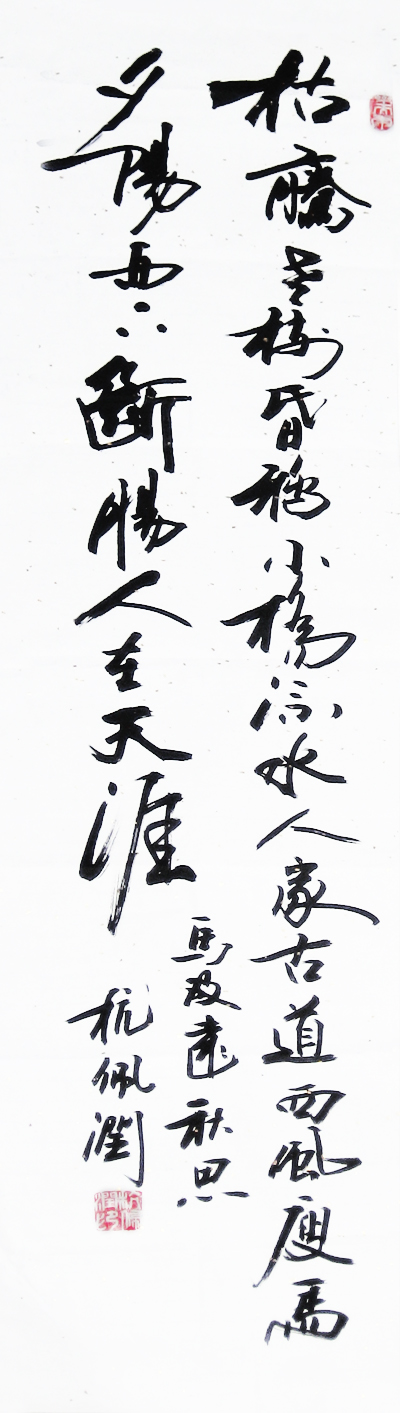 枯藤老樹昏鴉小橋流水人家古道西風瘦馬
夕陽西下斷腸人在天涯
馬致遠秋思
杭佩潤